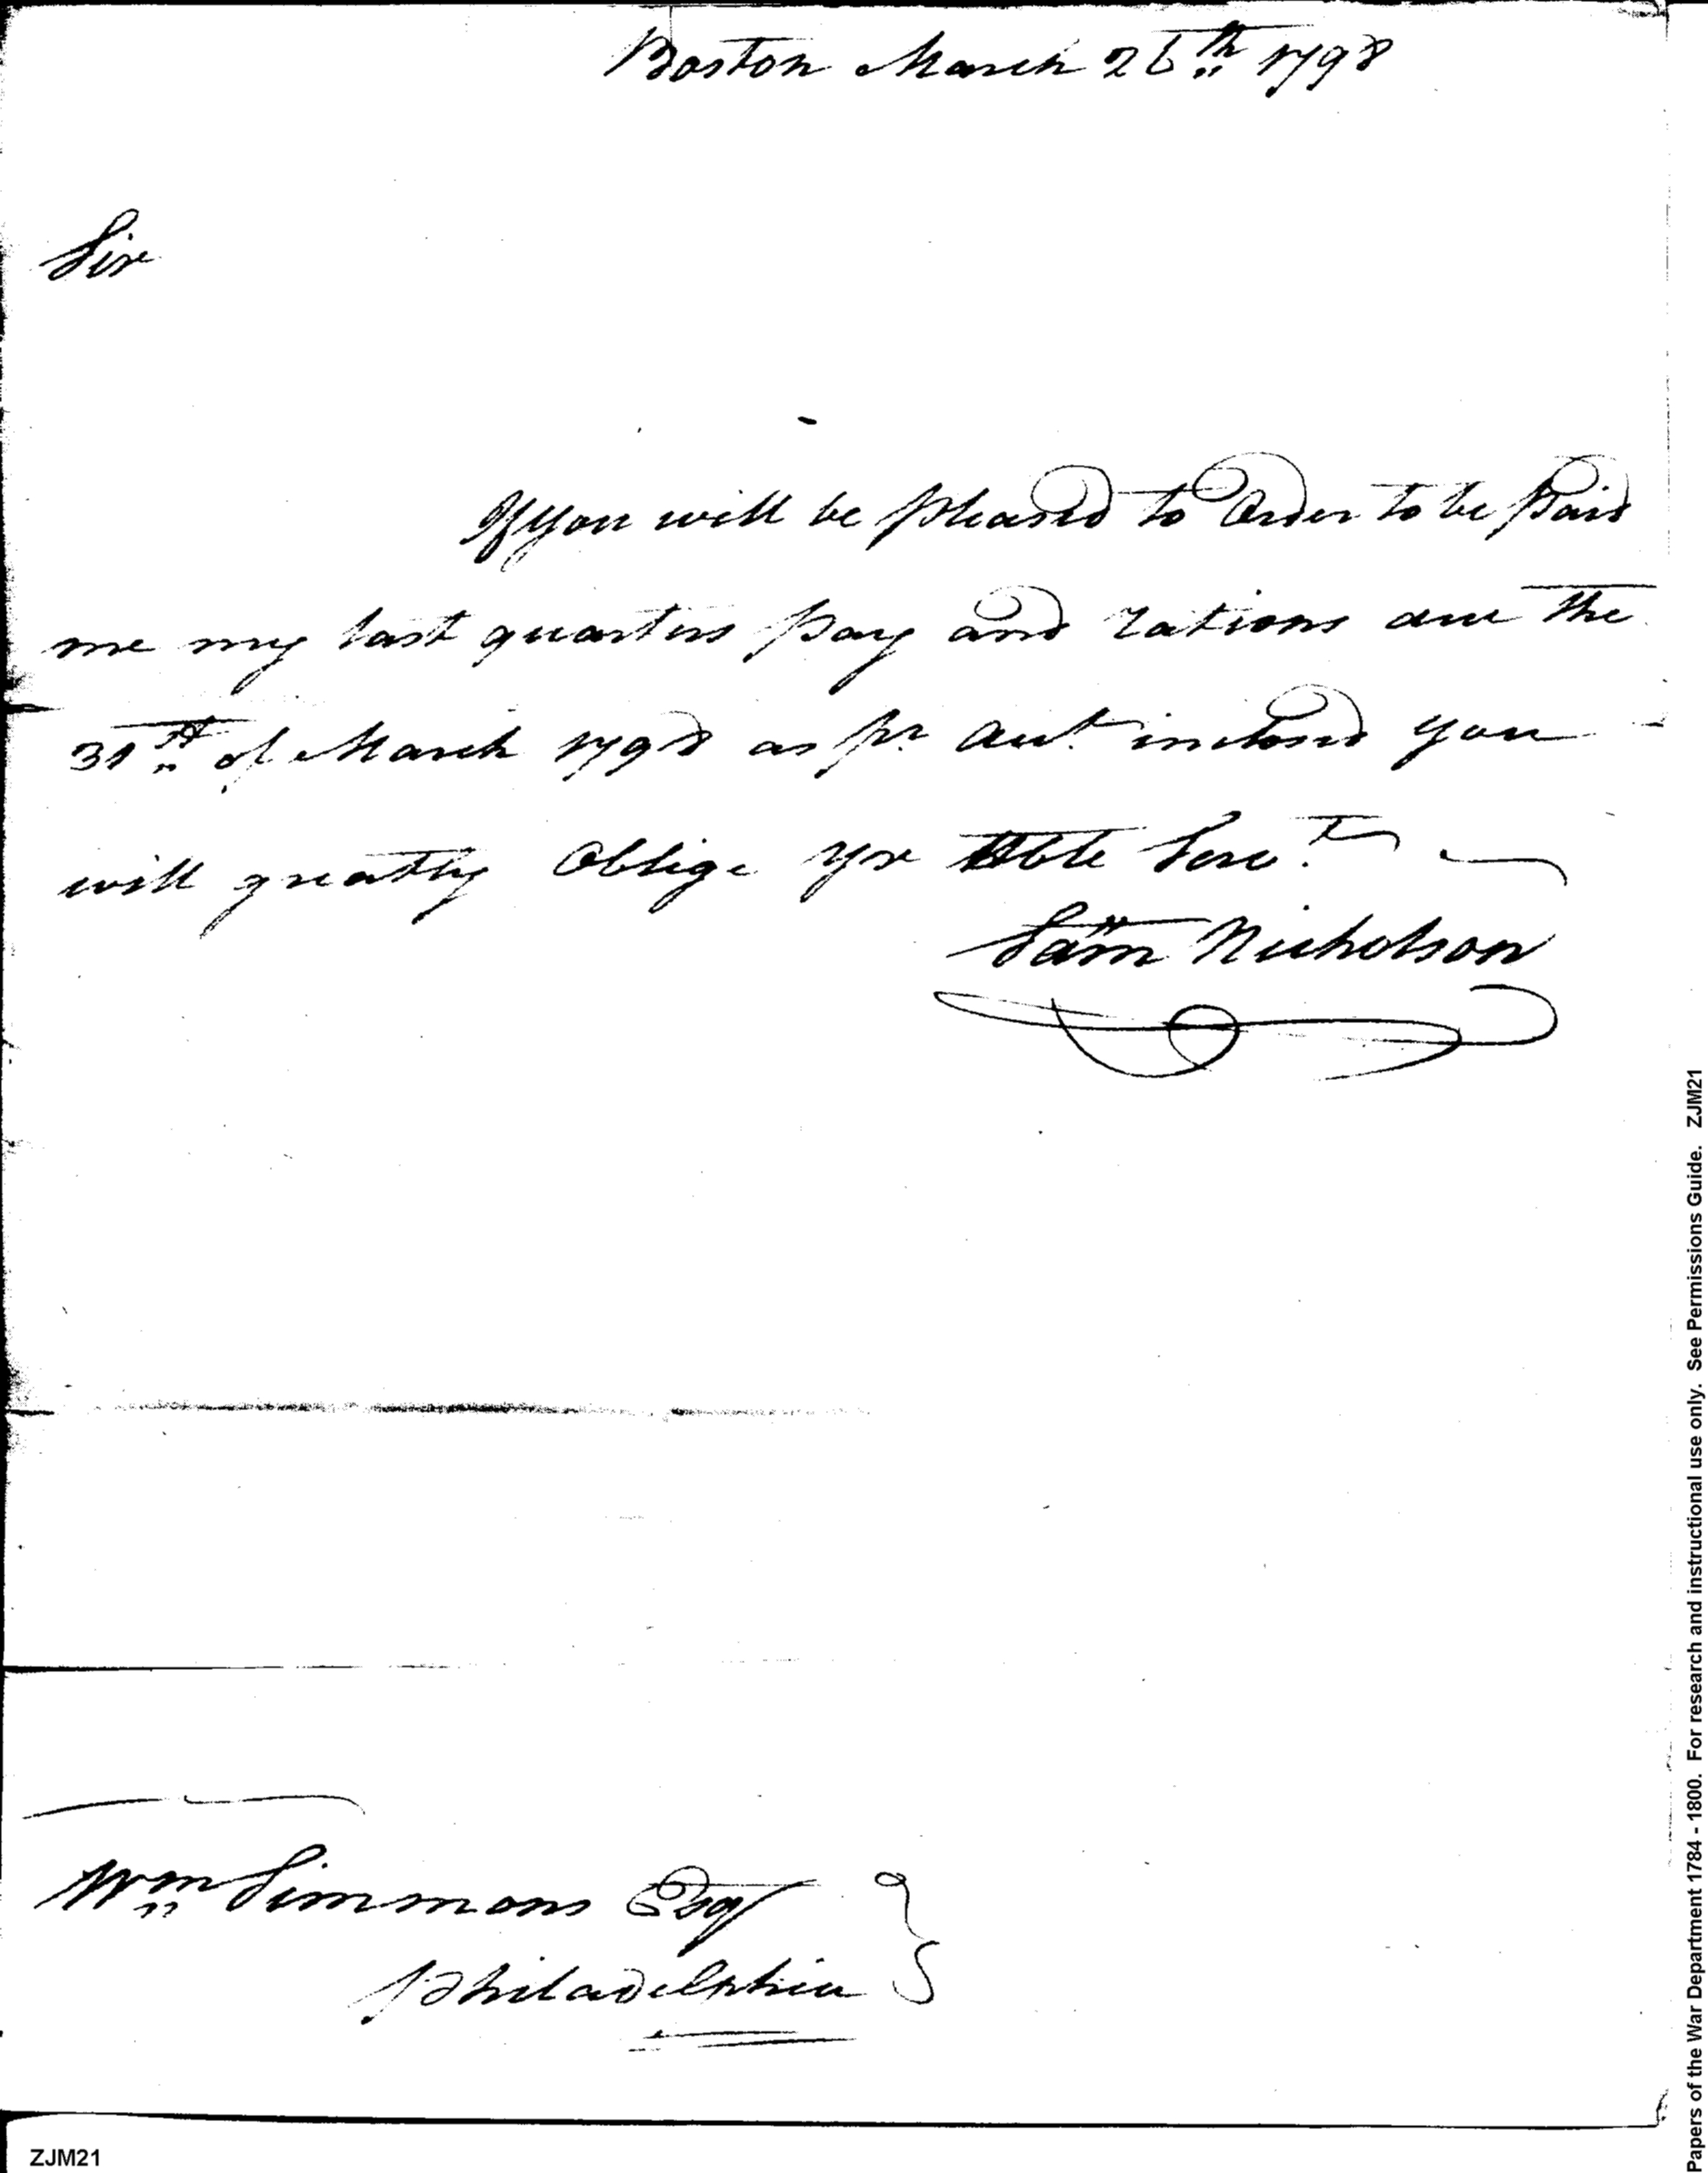 Boston March 26th 1798
Sir
If you will be pleased to Order to be paid
me my last quarters pay and rations due the
31st of March 1798 as pr. Acct. inclosed you
will greatly Oblige yr Hble Servt
Sam Nicholson
Wm Simmons Esqr
Philadelphia
ZJM21
Papers of the War Department 1784 - 1800. For research and instructional use only. See Permissions Guide. ZJM21